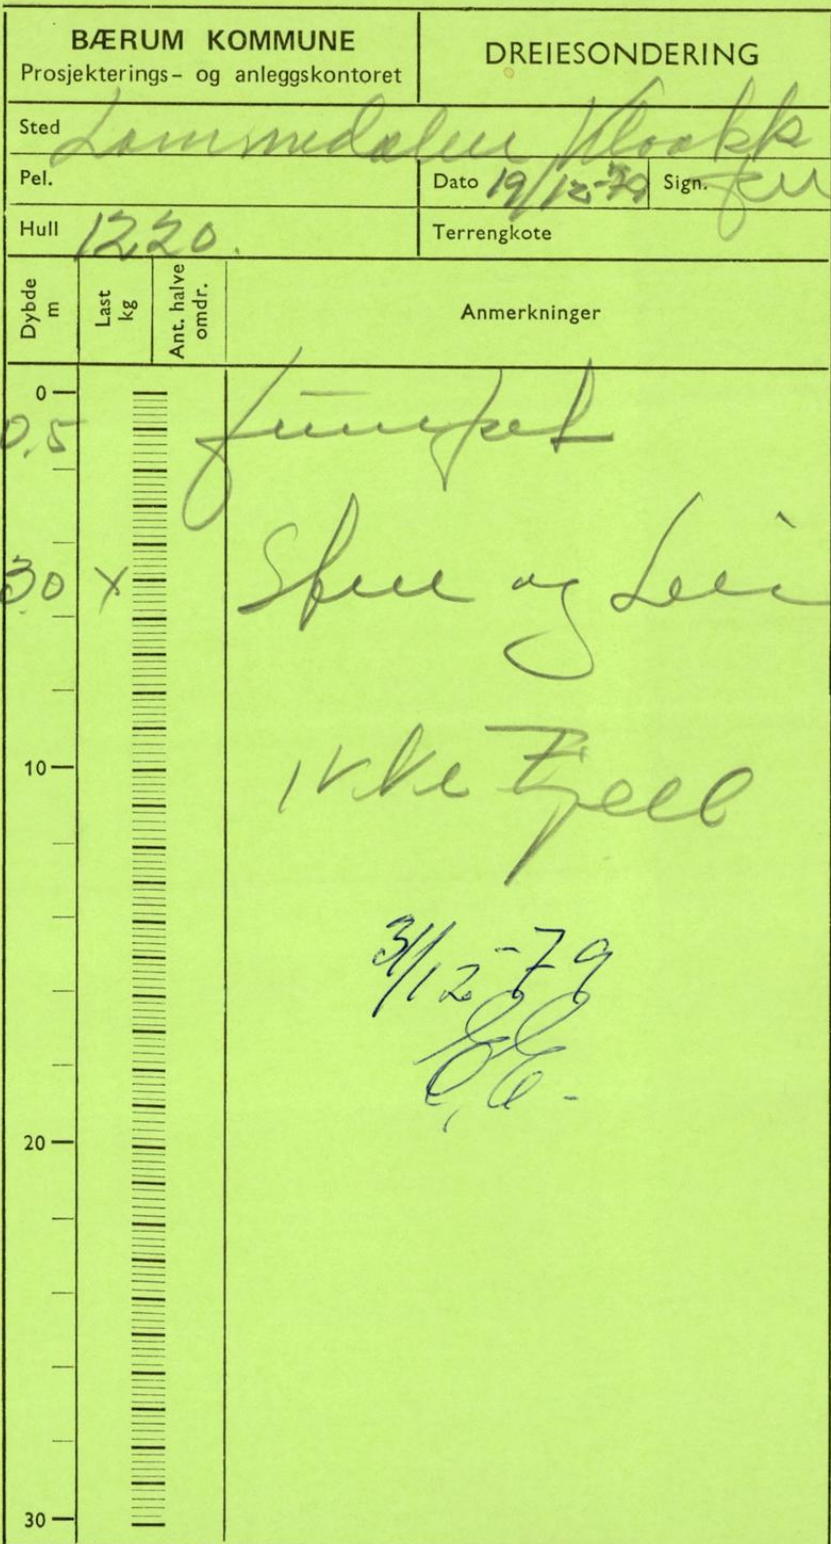 BÆRUM KOMMUNE
Prosjekterings- og anleggskontoret
DREIESONDERING
Sted Lommedalen Kloakk
Pel.
Dato 19/12-79 Sign.
Hull 1220.
Terrengkote
Dybde m
Last kg
Ant. halve omdr.
Anmerkninger
0
0,5
30 x
og Leire
10
ikke Fjell
31/12-79
20
30